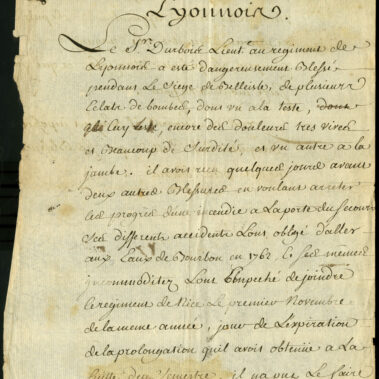 Lyonnois.
Le Sr. Durbois Lieut. au regiment de
Lyonnois a esté dangereusement Blessé
pendant le Siege de Bellisle, de plusieurs
Eclats de bombes, dont un a la teste, dont
il luy reste, encore des douleurs tres vives
et Beaucoup de Surdité, et un autre a la
jambe. il avoit reçu quelques jours avant
deux autres Blessures en voulant arreter
les progres d'une incendie a la porte du Secours
ces differents accidents L'ont obligé d'aller
aux Eaux de Bourbon en 1762. les mêmes
incommoditez L'ont Empeché de joindre
le regiment de Nice le premier Novembre
de la meme année, jour de L'expiration
de la prolongation qu'il avoit obtenüe a La
Suitte d'un Semestre il n'a pu le faire